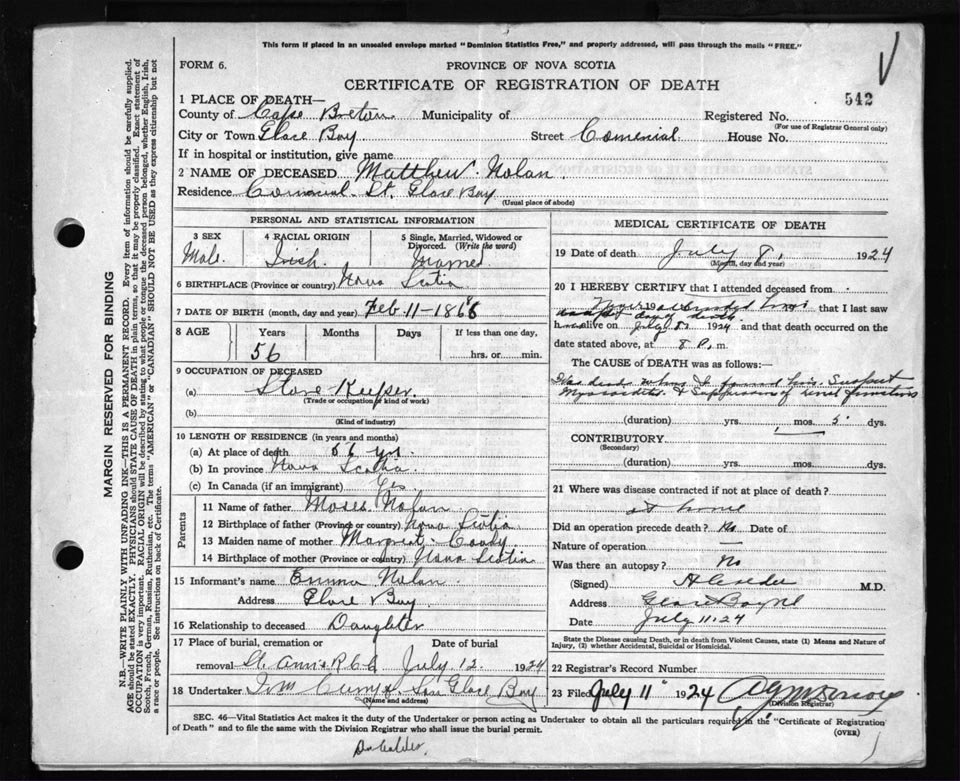 This form if placed in an unsealed envelope marked "Dominion Statistics Free," and properly addressed, will pass through the mails "FREE."
FORM 6.
PROVINCE OF NOVA SCOTIA
CERTIFICATE OF REGISTRATION OF DEATH
542
1 PLACE OF DEATH—
County of Cape Breton Municipality of Registered No.
(For use of Registrar General only)
City or Town Glace Bay Street Comercial House No.
If in hospital or institution, give name
2 NAME OF DECEASED Matthew Nolan
Residence Comercial St. Glace Bay
(Usual place of abode)
PERSONAL AND STATISTICAL INFORMATION
3 SEX Male
4 RACIAL ORIGIN Irish
5 Single, Married, Widowed or Divorced. (Write the word) Married
6 BIRTHPLACE (Province or country) Nova Scotia
7 DATE OF BIRTH (month, day and year) Feb 11-1868
8 AGE Years Months Days If less than one day,
56 hrs. or min.
9 OCCUPATION OF DECEASED
(a) Store Keeper
(Trade or occupation or kind of work)
(b)
(Kind of industry)
10 LENGTH OF RESIDENCE (in years and months)
(a) At place of death 56 yrs
(b) In province Nova Scotia
(c) In Canada (if an immigrant) Yes
Parents
11 Name of father Moses Nolan
12 Birthplace of father (Province or country) Nova Scotia
13 Maiden name of mother Margreat Coady
14 Birthplace of mother (Province or country) Nova Scotia
15 Informant's name Emma Nolan
Address Glace Bay
16 Relationship to deceased Daughter
17 Place of burial, cremation or Date of burial
removal St Ann's R.C.C July 12 1924
18 Undertaker Glace Bay
(Name and address)
MEDICAL CERTIFICATE OF DEATH
19 Date of death July 8, 1924
(Month, day and year)
20 I HEREBY CERTIFY that I attended deceased from
Never attended him that I last saw
day of death
h alive on July 8 1924 and that death occurred on
date stated above, at 8 P. m.
The CAUSE of DEATH was as follows:
Was dead when I found him. Suspect
Myocarditis & Suppression of renal functions
(duration) yrs. mos. 5 dys.
CONTRIBUTORY
(Secondary)
(duration) yrs. mos. dys.
21 Where was disease contracted if not at place of death?
at home
Did an operation precede death? No Date of
Nature of operation —
Was there an autopsy? No
(Signed) M.D.
Address Glace Bay
Date July 11.24
State the Disease causing Death, or in death from Violent Causes, state (1) Means and Nature of Injury, (2) whether Accidental, Suicidal or Homicidal.
22 Registrar's Record Number
23 Filed July 11 1924
(Division Registrar)
SEC. 46—Vital Statistics Act makes it the duty of the Undertaker or person acting as Undertaker to obtain all the particulars required in the "Certificate of Registration
of Death" and to file the same with the Division Registrar who shall issue the burial permit.
(OVER)
MARGIN RESERVED FOR BINDING
N.B.—WRITE PLAINLY WITH UNFADING INK—THIS IS A PERMANENT RECORD. Every item of information should be carefully supplied.
AGE should be stated EXACTLY. PHYSICIANS should STATE CAUSE OF DEATH in plain terms, so that it may be properly classified. Exact statement of
OCCUPATION is very important. RACIAL ORIGIN will be described by stating to what people or tongue the deceased person belonged, whether English, Irish,
Scotch, French, German, Russian, Ruthenian, etc. The terms "AMERICAN" or "CANADIAN" SHOULD NOT BE USED as they express citizenship but not
a race or people. See instructions on back of Certificate.